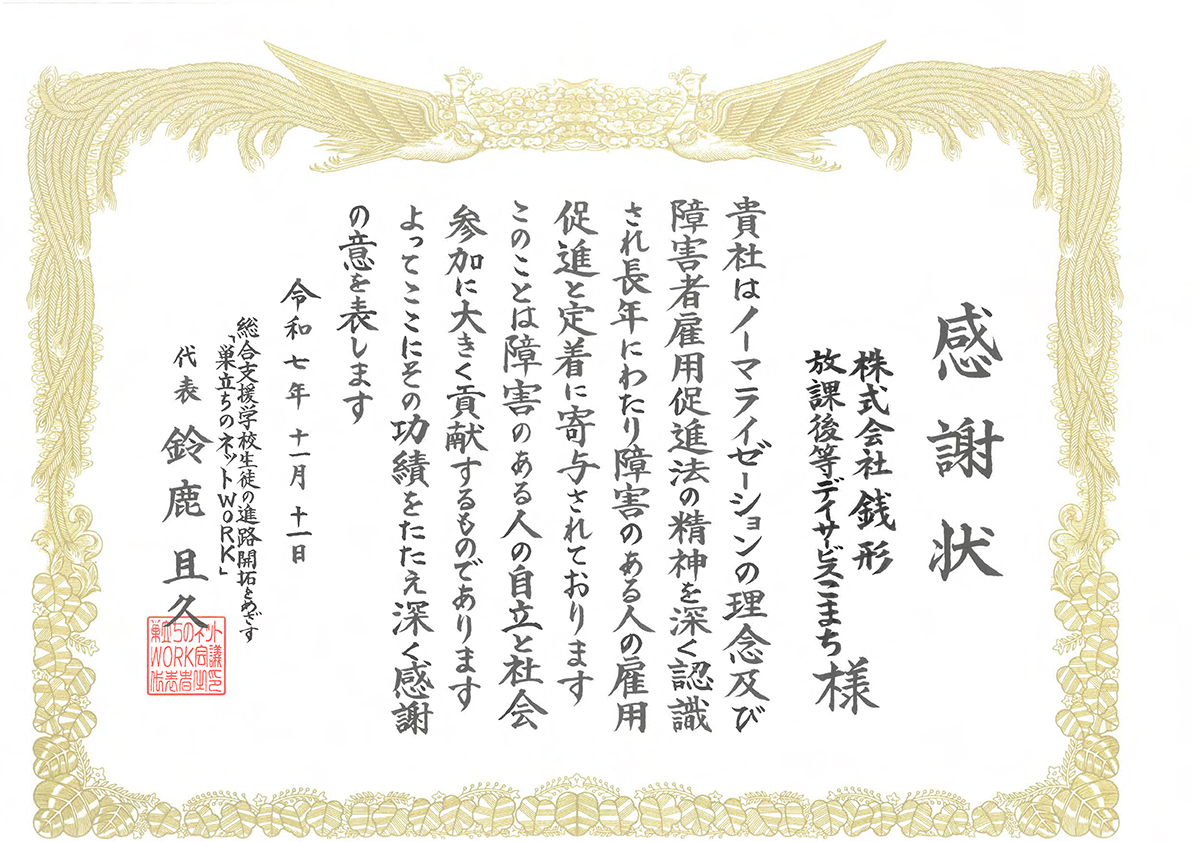 感謝状
株式会社銭形
放課後等デイサービスこまち 様
貴社はノーマライゼーションの理念及び
障害者雇用促進法の精神を深く認識
され長年にわたり障害のある人の雇用
促進と定着に寄与されております
このことは障害のある人の自立と社会
参加に大きく貢献するものであります
よってここにその功績をたたえ深く感謝
の意を表します
令和七年十一月十一日
総合支援学校生徒の進路開拓をめざす
「巣立ちのネットWORK」
代表 鈴鹿且久
巣立ちのネット
WORK会議
代表者之印